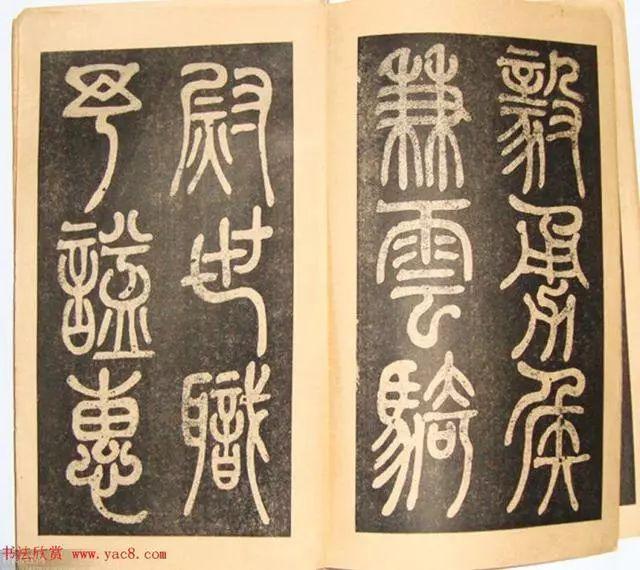 毅勇侯
兼雲騎
尉世職
予謚惠
书法欣赏 www.yac8.com